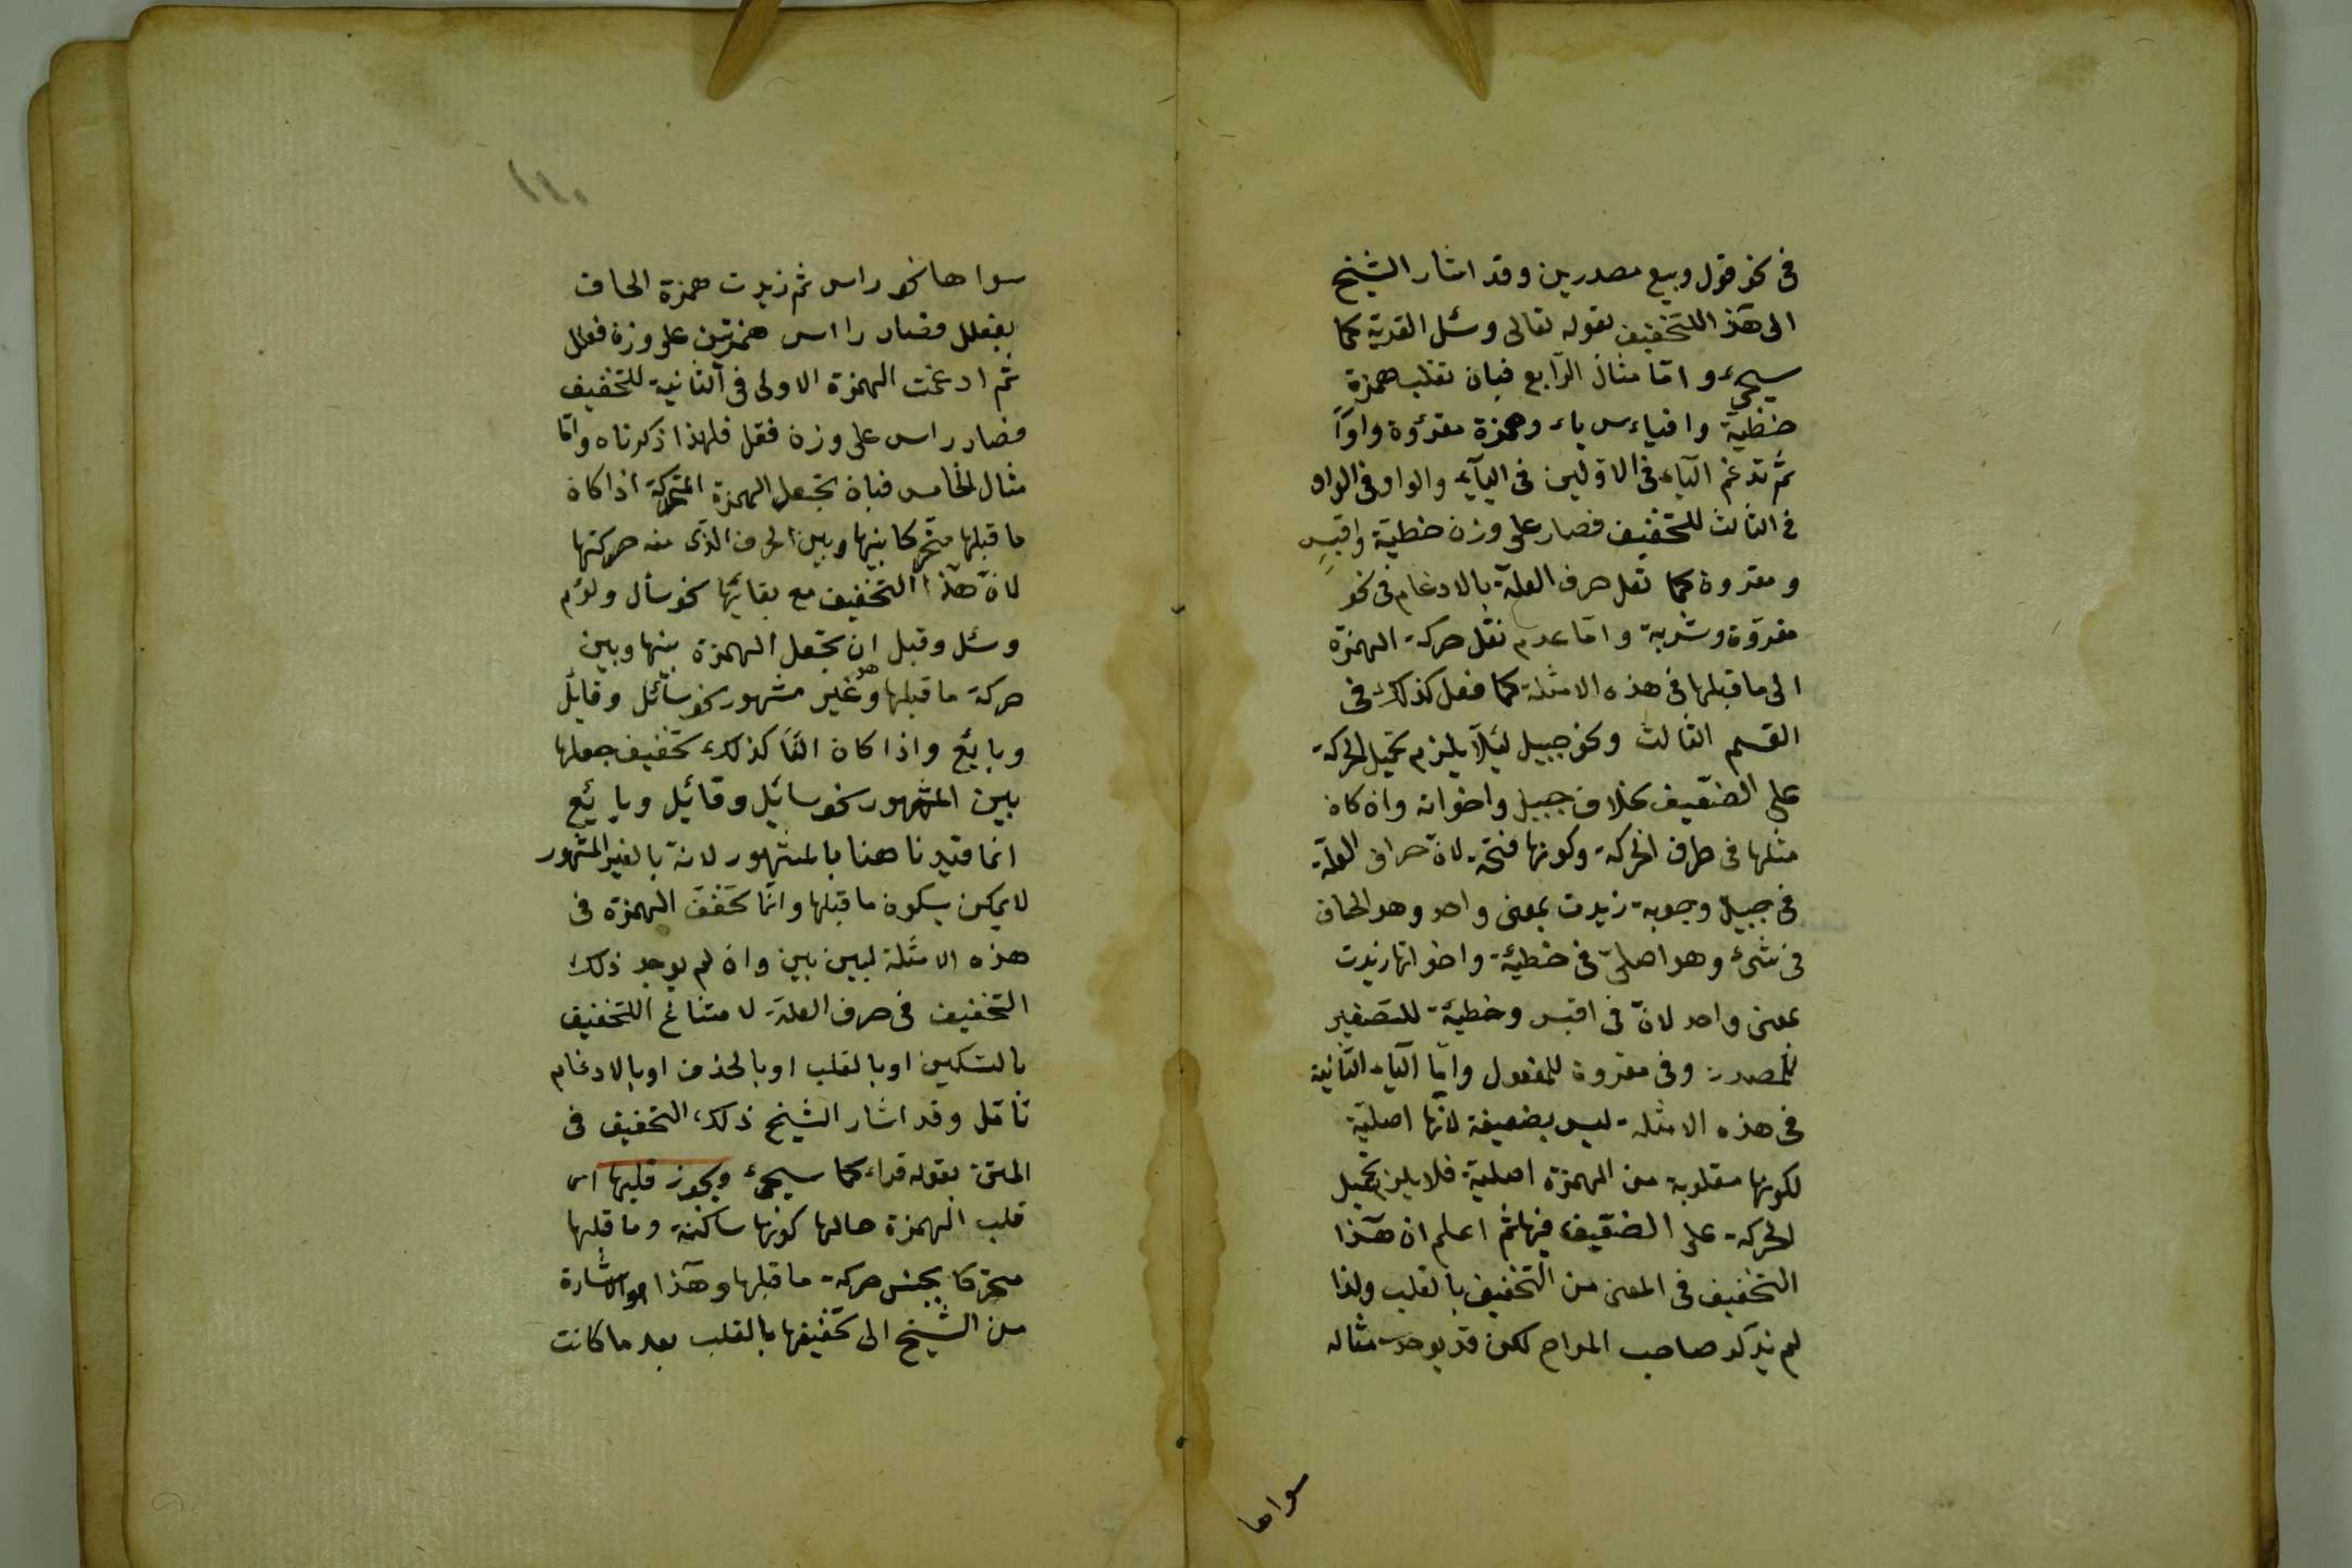 فى نحو قول وبيع مصدرين وقد اشار الشيخ
الى هٓذ اللتخفيف بقوله تعالى وسئل القرية كما
سيجىء وامّا مثال الرّابع فبان تقلب همزة
خطيّة وافياس ياء وهمزة مقرؤة واوًا
ثمّ تدغم اليآء فى الاوّلين فى اليآء والواو فى الواو
فى الثالث للتخفيف فصار على وزن خطيّة واقيس
ومقروة كما تعل حرف العلّة بالادغام فى نحو
مقروّة وشربة وامّا عدم نقل حركة الهمزة
الى ما قبلها فى هذه الامثلة كما فعل كذلك فى
القسم الثالث ونحو جبيل ليئلّا يلزم تحميل الحركة
على الضعيف بخلاف جبيل واخواته وان كان
مثلها فى طرف الحركة وكونها فتحة لانّ حرف العلّة
فى جبيل وجوبة زيدت بمعنى واحد وهو الحاق
فى شىء وهو اصلىّ فى خطيئة واخواتها زيدت
بمعنى واحد لانّ فى اقيس وخطيّة للتصغير
للمصدر وفى مقروة للمفعول وامّا اليآء الثّانية
فى هذه الامثلة ليس بضعيفة لانّها اصليّة
لكونها مقلوبة من الهمزة اصلية فلا يلزم تحميل
الحركة على الضعيف فيها ثمّ اعلم ان هٓذا
التخفيف فى المعنى من التخفيف بالقلب ولذا
لم يذكر صاحب المراح لكن قد يوجد مثاله
سواها
١١٠
سواها نحو راس ثم زيدت همزة الحاق
بفعلل فصار رااس همزتين على وزن فعلل
ثمّ ادغمت الهمزة الاولى فى الثانية للتخفيف
فصار راس على وزن فعل فلهذا ذكرناه وامّا
مثال الخامس فبان تجعل الهمزة المتحركة اذا كان
ما قبلها متحركا بينها وبين الحرف الذى منه حركتها
لانّ هٓذا التخفيف مع بقائها نحو سأل ولؤم
وسئل وقبل ان تجعل الهمزة بينها وبين
حركة ما قبلها وهو غير مشهور نحو سأئل وقايل
وبايئع واذا كان الفًا كذلك تخفيف جعلها
بين المشهور نحو سائل وقائل وبايئع
انما قيدنا هنا بالمشهور لانه بالغير المشهور
لا يمكن بسكون ما قبلها وانّما تخفف الهمزة فى
هذه الامثلة لبين بين وان لم يوجد ذلك
التخفيف فى حرف العلة لامتناع اللتخفيف
بالتسكين او بالقلب او بالحذف او بالادغام
تأمّل وقد اشار الشيخ ذلك التخفيف فى
المتن بقوله قراء كما سيجىء ويجوز قلبها اى
قلب الهمزة حالها كونها ساكنة وما قبلها
متحركا بجنس حركة ما قبلها وهٓذا هو الاشارة
من الشيخ الى تخفيفها بالقلب بعد ما كانت